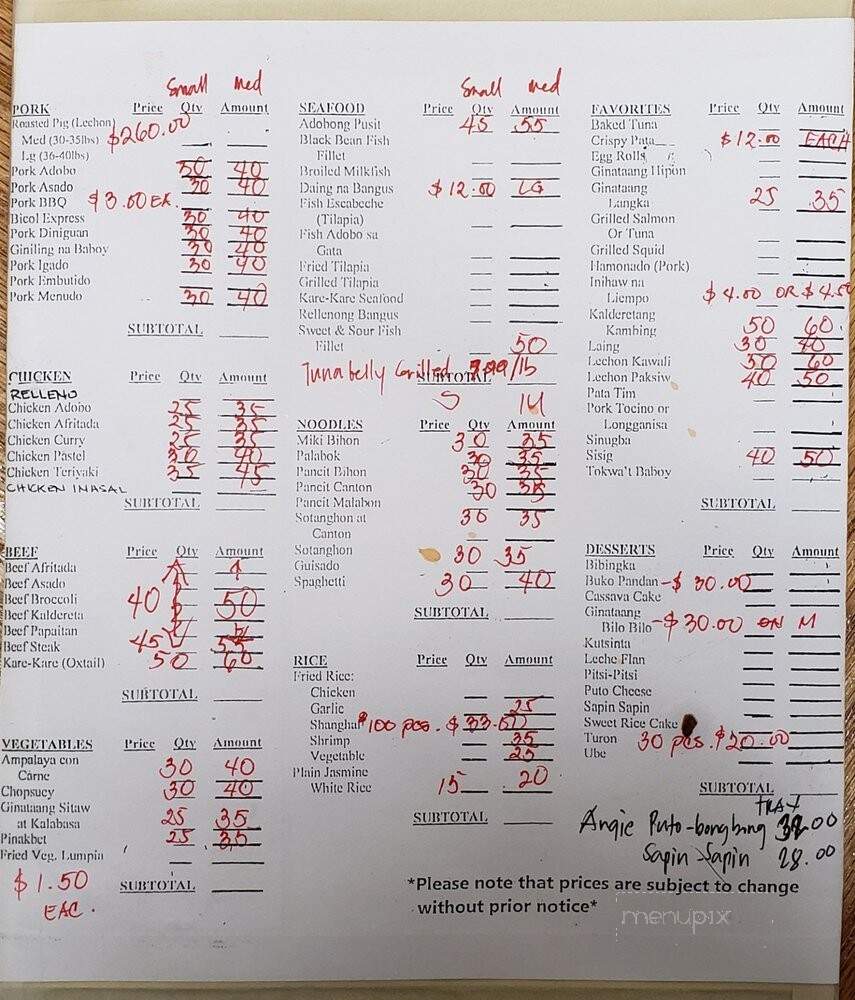 Small Med
PORK Price Qty Amount
Roasted Pig (Lechon)
Med (30-35lbs) $260.00
Lg (36-40lbs)
Pork Adobo 30 40
Pork Asado 30 40
Pork BBQ $3.00 EA.
Bicol Express 30 40
Pork Diniguan 30 40
Giniling na Baboy 30 40
Pork Igado 30 40
Pork Embutido
Pork Menudo 30 40
SUBTOTAL
CHICKEN Price Qty Amount
RELLENO
Chicken Adobo 25 35
Chicken Afritada 25 35
Chicken Curry 25 35
Chicken Pastel 30 40
Chicken Teriyaki 35 45
CHICKEN INASAL
SUBTOTAL
BEEF Price Qty Amount
Beef Afritada
Beef Asado
Beef Broccoli 40 50
Beef Kaldereta
Beef Papaitan
Beef Steak 45 55
Kare-Kare (Oxtail) 50 60
SUBTOTAL
VEGETABLES Price Qty Amount
Ampalaya con
Carne 30 40
Chopsuey 30 40
Ginataang Sitaw
at Kalabasa 25 35
Pinakbet 25 35
Fried Veg. Lumpia
$1.50
EAC.
SUBTOTAL
Small Med
SEAFOOD Price Qty Amount
Adobong Pusit 45 55
Black Bean Fish
Fillet
Broiled Milkfish
Daing na Bangus $12.00 LG
Fish Escabeche
(Tilapia)
Fish Adobo sa
Gata
Fried Tilapia
Grilled Tilapia
Kare-Kare Seafood
Rellenong Bangus
Sweet & Sour Fish
Fillet 50
Tuna belly Grilled /lb
SUBTOTAL
S M
NOODLES Price Qty Amount
Miki Bihon 30 35
Palabok 30 35
Pancit Bihon 30 35
Pancit Canton 30 35
Pancit Malabon
Sotanghon at 30 35
Canton
Sotanghon 30 35
Guisado
Spaghetti 30 40
SUBTOTAL
RICE Price Qty Amount
Fried Rice:
Chicken
Garlic 25
Shanghai $100 pcs. $33.00
Shrimp 35
Vegetable 25
Plain Jasmine
White Rice 15 20
SUBTOTAL
FAVORITES Price Qty Amount
Baked Tuna
Crispy Pata $12.00 EACH
Egg Rolls
Ginataang Hipon
Ginataang
Langka 25 35
Grilled Salmon
Or Tuna
Grilled Squid
Hamonado (Pork)
Inihaw na
Liempo $4.00 OR $4.50
Kalderetang
Kambing 50 60
Laing 30 40
Lechon Kawali 50 60
Lechon Paksiw 40 50
Pata Tim
Pork Tocino or
Longganisa
Sinugba
Sisig 40 50
Tokwa't Baboy
SUBTOTAL
DESSERTS Price Qty Amount
Bibingka
Buko Pandan -$30.00
Cassava Cake
Ginataang
Bilo Bilo -$30.00 ON M
Kutsinta
Leche Flan
Pitsi-Pitsi
Puto Cheese
Sapin Sapin
Sweet Rice Cake
Turon 30 pcs. $20.00
Ube
SUBTOTAL
TRAY
Angie Puto-bongbong .00
Sapin-Sapin 28.00
*Please note that prices are subject to change
without prior notice*
menupix